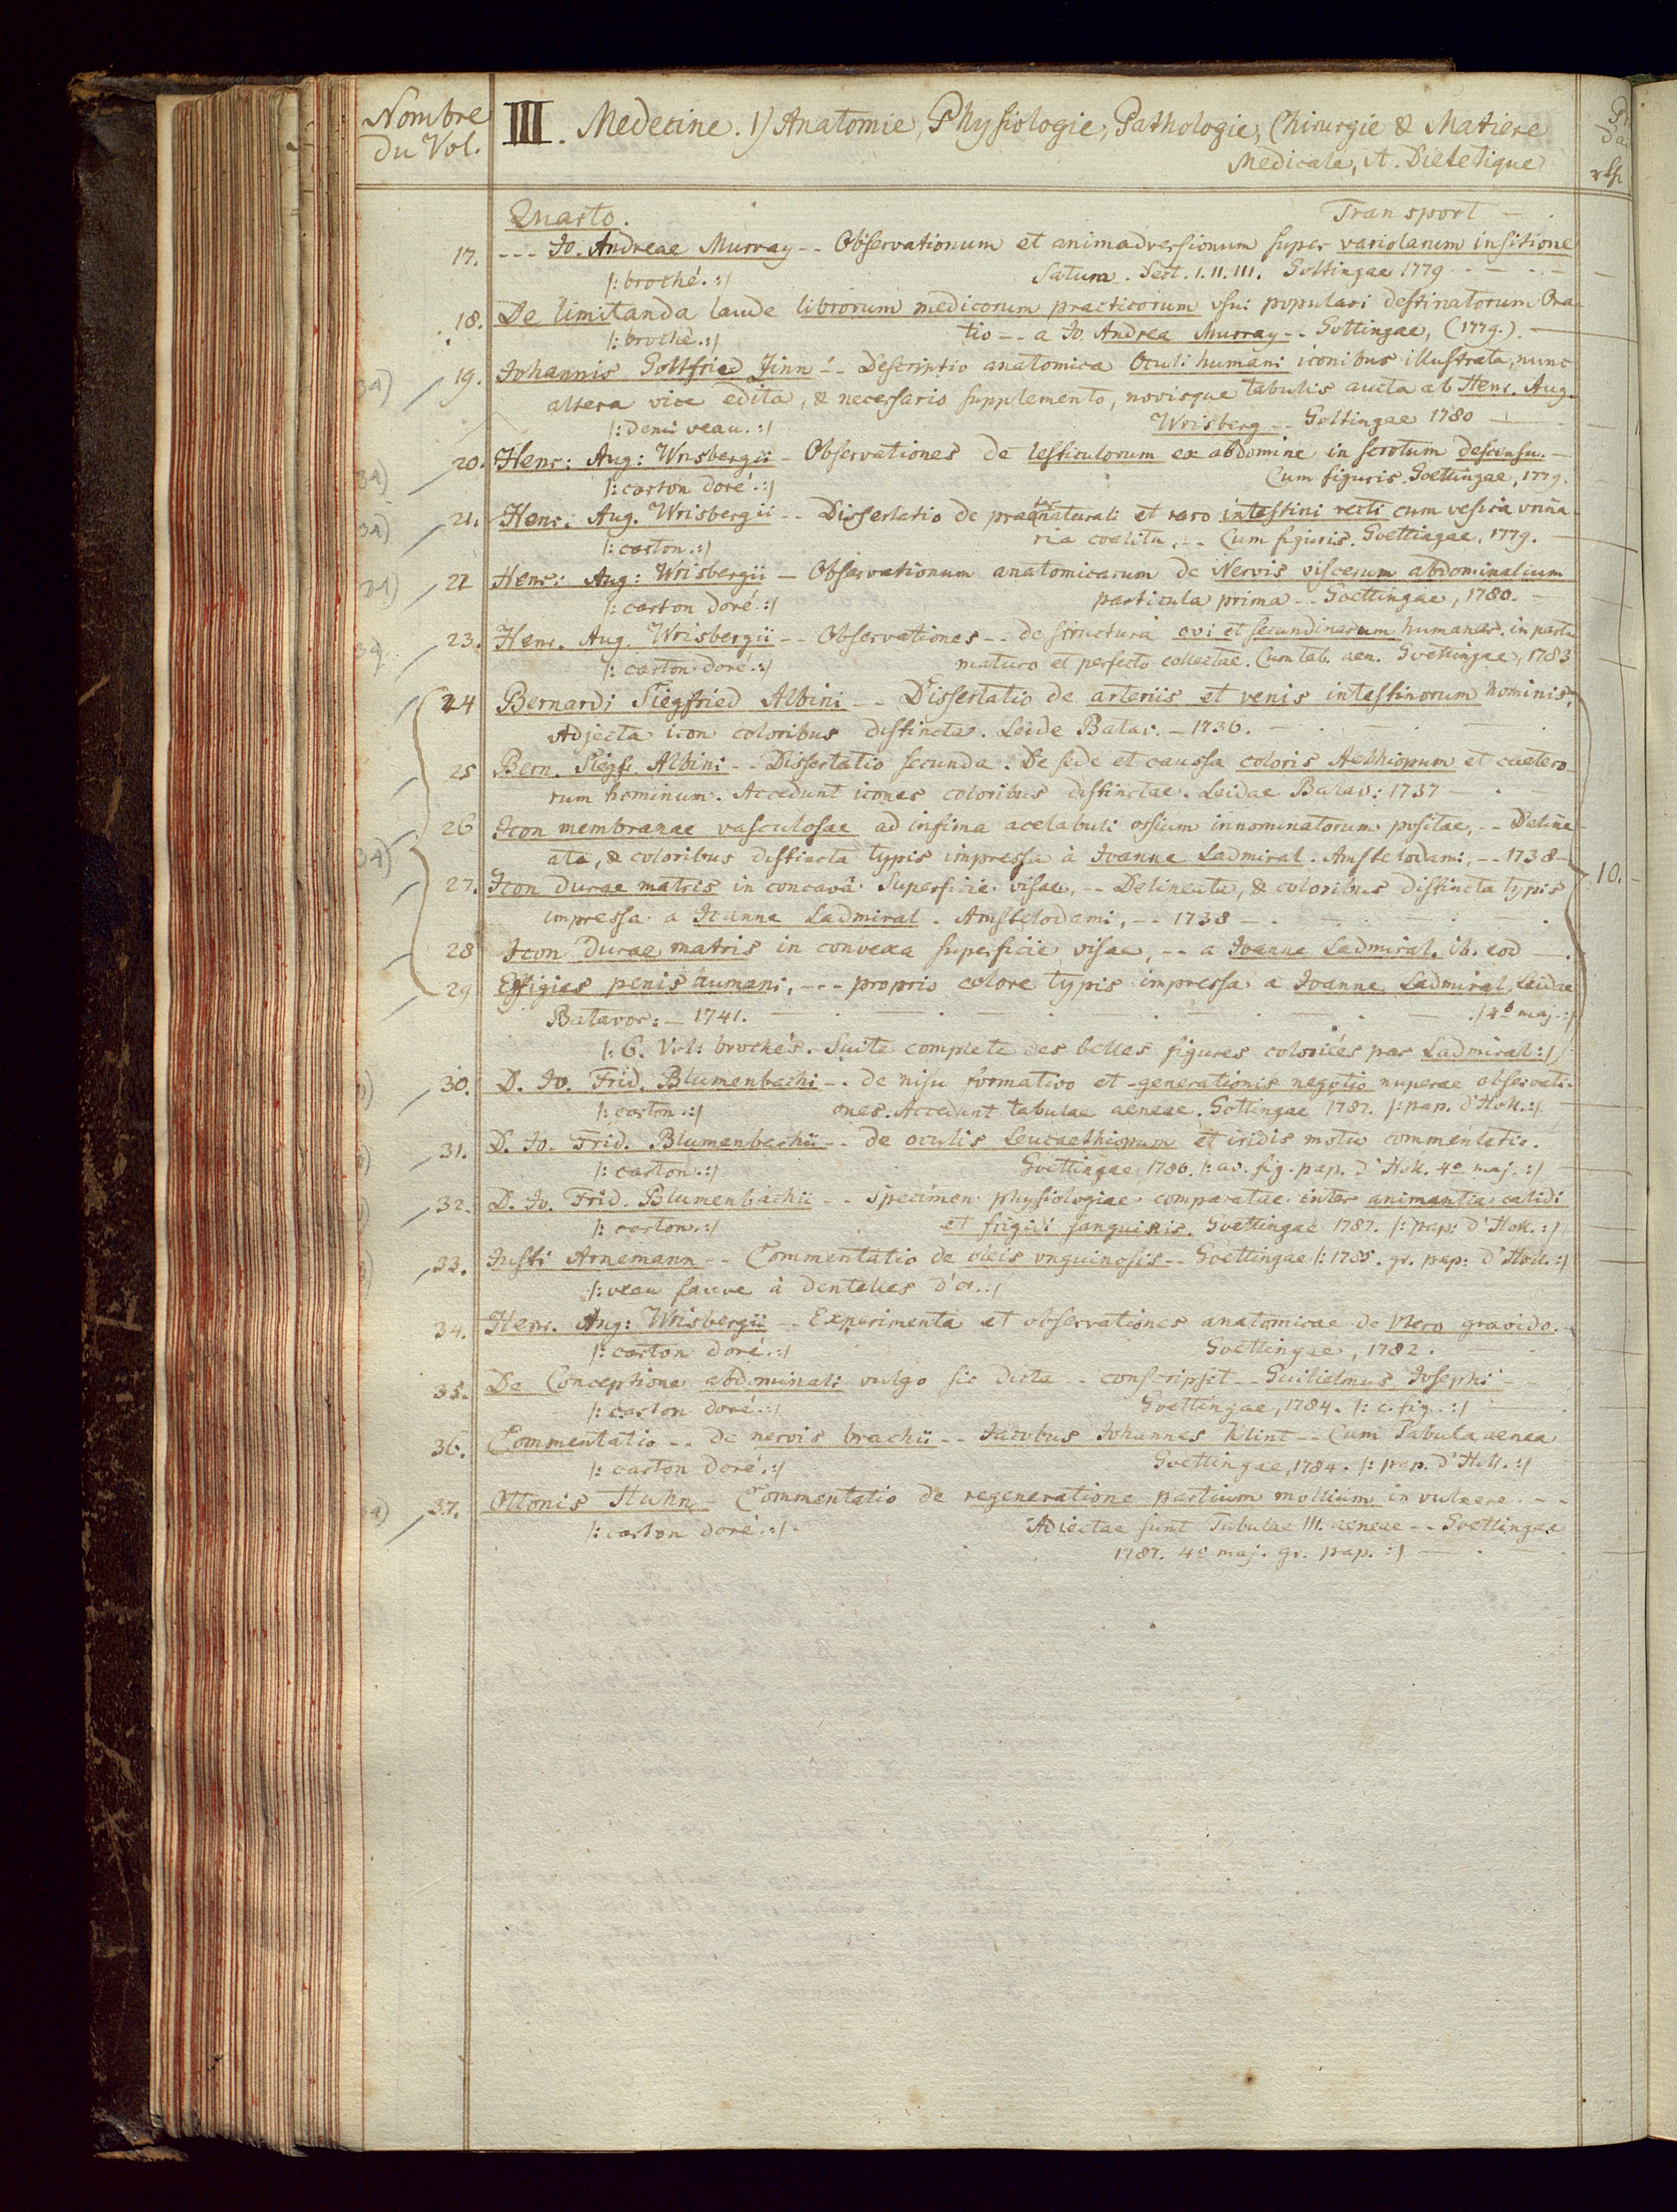 Nombre
du Vol.
III. Medecine. 1) Anatomie, Physiologie, Pathologie, Chirurgie & Matiere
Medicale, it. Dietetique
Quarto. Transport -
17. --- Jo. Andreae Murray -- Observationum et animadversionum super variolarum insitione
/: broché. :/ Satum. Sect. I. II. III. Gottingae 1779
18. De limitanda laude librorum medicorum practicorum usui populari destinatorum Ora-
/: broché. :/ tio -- a Jo. Andrea Murray -- Gottingae, (1779.)
34) 19. Johannis Gottfried Zinn -- Descriptio anatomica Oculi humani iconibus illustrata, nunc
altera vice edita, & necessario supplemento, novisque tabulis aucta ab Henr. Aug.
/: demi veau. :/ Wrisberg -- Gottingae 1780
34) 20. Henr: Aug: Wrisbergii - Observationes de testiculorum ex abdomine in scrotum descensu. -
/: carton doré. :/ Cum figuris. Goettingae, 1779.
34) 21. Henr. Aug. Wrisbergii -- Dissertatio de praeternaturali et raro intestini recti cum vesica urina
/: carton. :/ ria coalitu, -- Cum figuris. Goettingae, 1779.
34) 22 Henr: Aug: Wrisbergii - Observationum anatomicarum de Nervis viscerum abdominalium
/: carton doré. :/ particula prima -- Goettingae, 1780.
34. 23. Henr. Aug. Wrisbergii -- Observationes -- de structura ovi et secundinarum humanar. in partu
/: carton doré. :/ maturo et perfecto collectae. Cum tab. aen. Goettingae, 1783
24 Bernardi Siegfried Albini -- Dissertatio de arteriis et venis intestinorum hominis,
Adjecta icon coloribus distincta. Leide Batav. - 1736.
25 Bern. Siegfr. Albini -- Dissertatio secunda. De sede et caussa coloris Aethiopum et caetero-
rum hominum. Accedunt icones coloribus distinctae. Leidae Batav: 1737
26 Icon membranae vasculosae ad infima acetabuli ossium innominatorum positae, -- Deline-
34) ata, & coloribus distincta typis impressa à Joanne Ladmiral. Amstelodami, -- 1738
27. Icon durae matris in concavâ superficie visae, -- Delineata, & coloribus distincta typis 10.
impressa a Joanne Ladmiral. Amstelodami, -- 1738
28 Icon durae matris in convexa superficie visae, -- a Joanne Ladmiral. ib. eod
29 Effigies penis humani, --- proprio colore typis impressa a Joanne Ladmiral, Leidae
Batavor: - 1741. /4o maj. :/
/: 6. Vol: brochés. Suite complete des belles figures coloriées par Ladmiral :/
30. D. Jo. Frid. Blumenbachi -- de nisu formativo et generationis negotio nuperae observati-
/: carton. :/ ones. Accedunt tabulae aeneae. Gottingae 1787. /: pap. d'Holl. :/
31. D. Jo. Frid. Blumenbachii -- de oculis Leucaethiopum et iridis motu commentatio.
/: carton. :/ Goettingae, 1786. /: av. fig. pap. d'Holl. 4o maj. :/
32. D. Jo. Frid. Blumenbachii -- specimen physiologiae comparatae inter animantia calidi
/: carton. :/ et frigidi sanguinis. Goettingae 1787. /: pap: d'Holl. :/
33. Justi Arnemann -- Commentatio de oleis unguinosis -- Goettingae /: 1785. gr. pap: d'Holl. :/
/: veau fauve à dentelles d'or. :/
34. Henr. Aug: Wrisbergii -- Experimenta et observationes anatomicae de Utero gravido.
/: carton doré. :/ Goettingae, 1782.
35. De Conceptione abdominali vulgo sic dicta -- conscripsit -- Guilielmus Josephi
/: carton doré. :/ Goettingae, 1784. /: c. fig. :/
36. Commentatio -- de nervis brachii -- Jacobus Johannes Klint -- Cum Tabula aenea
/: carton doré. :/ Goettingae, 1784. /: pap. d'Holl. :/
37. Ottonis Huhn - Commentatio de regeneratione partium mollium in vulnere. --
/: carton doré. :/ Adiectae sunt Tabulae III. aeneae -- Goettingae
1787. 4o maj. gr. pap. :/